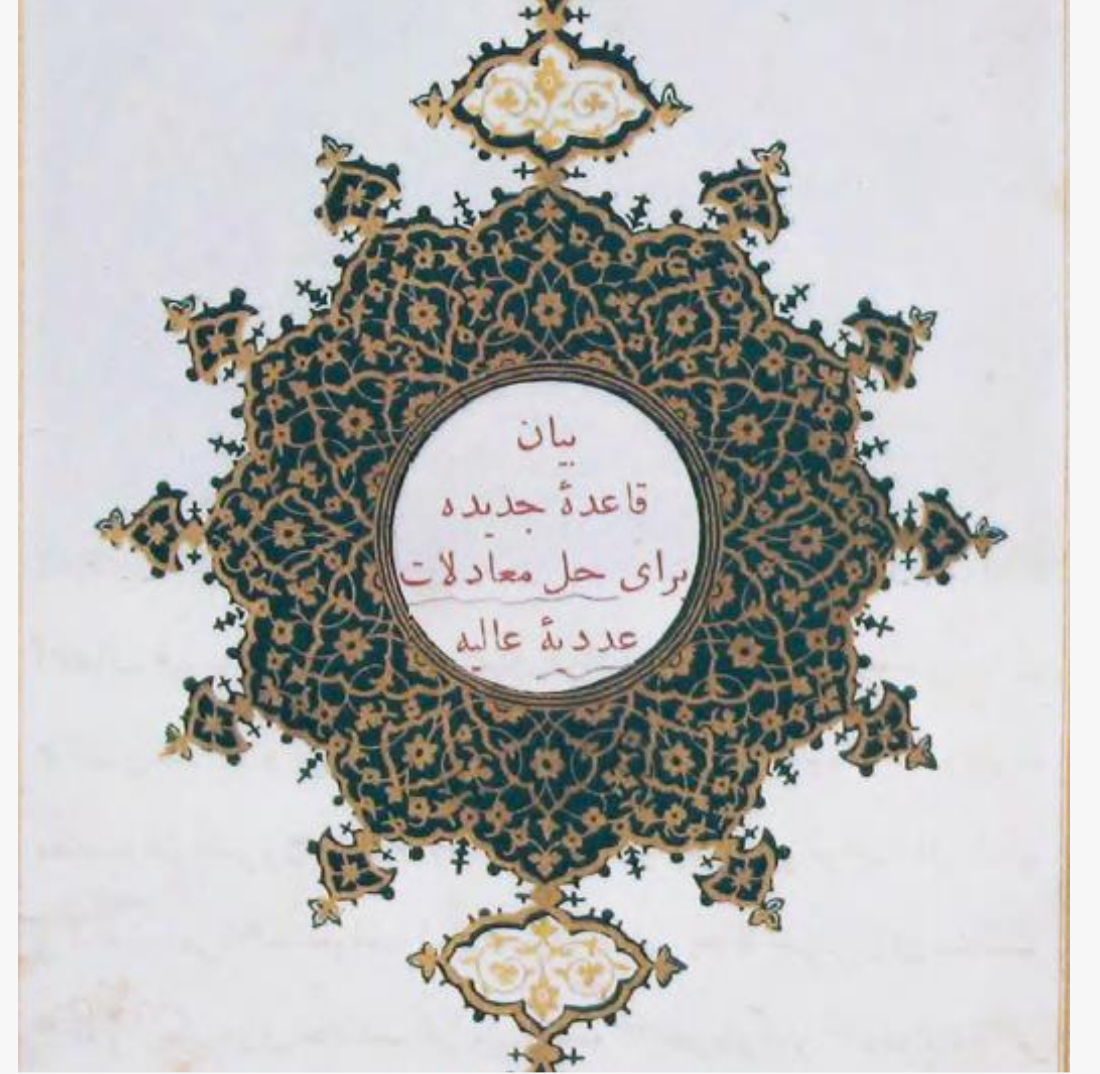 بیان
قاعدۀ جدیده
برای حل معادلات
عددیۀ عالیه